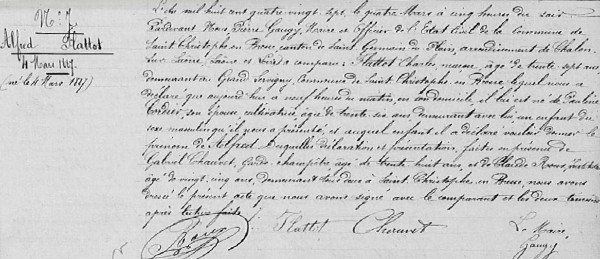 N° 7
Alfred Flattot
4 Mars 1887.
(né le 4 Mars 1887)
L'an mil huit cent quatre vingt sept, le quatre Mars à cinq heures du soir
Pardevant Nous Pierre Gaugy, Maire et Officier de l'Etat Civil de la Commune de
Saint Christophe en Bresse, canton de Saint Germain du Plain, arrondissement de Chalon
sur Saône, Saône et Loire a comparu: Flattot Charles maçon, âgé de trente sept ans,
demeurant au Grand Servigny, Commune de Saint Christophe en Bresse, lequel nous a
déclaré que aujourd'hui à neuf heures du matin, en son domicile, il lui est né de Pauline
Cordier, son épouse, cultivatrice, âgée de trente six ans demeurant avec lui, un enfant du
sexe masculin qu'il nous a présenté, et auquel enfant il a déclaré vouloir donner le
prénom de Alfred. Lesquelles déclaration et présentation, faites en présence de
Gabriel Chauvet, Garde champêtre âgé de trente huit ans, et de Claude
âgé de vingt cinq ans, demeurant tous deux à Saint Christophe en Bresse, nous avons
dressé le présent acte que nous avons signé avec le comparant et les deux témoins
après lecture faite.
Flattot Chauvet Le Maire,
Gaugy